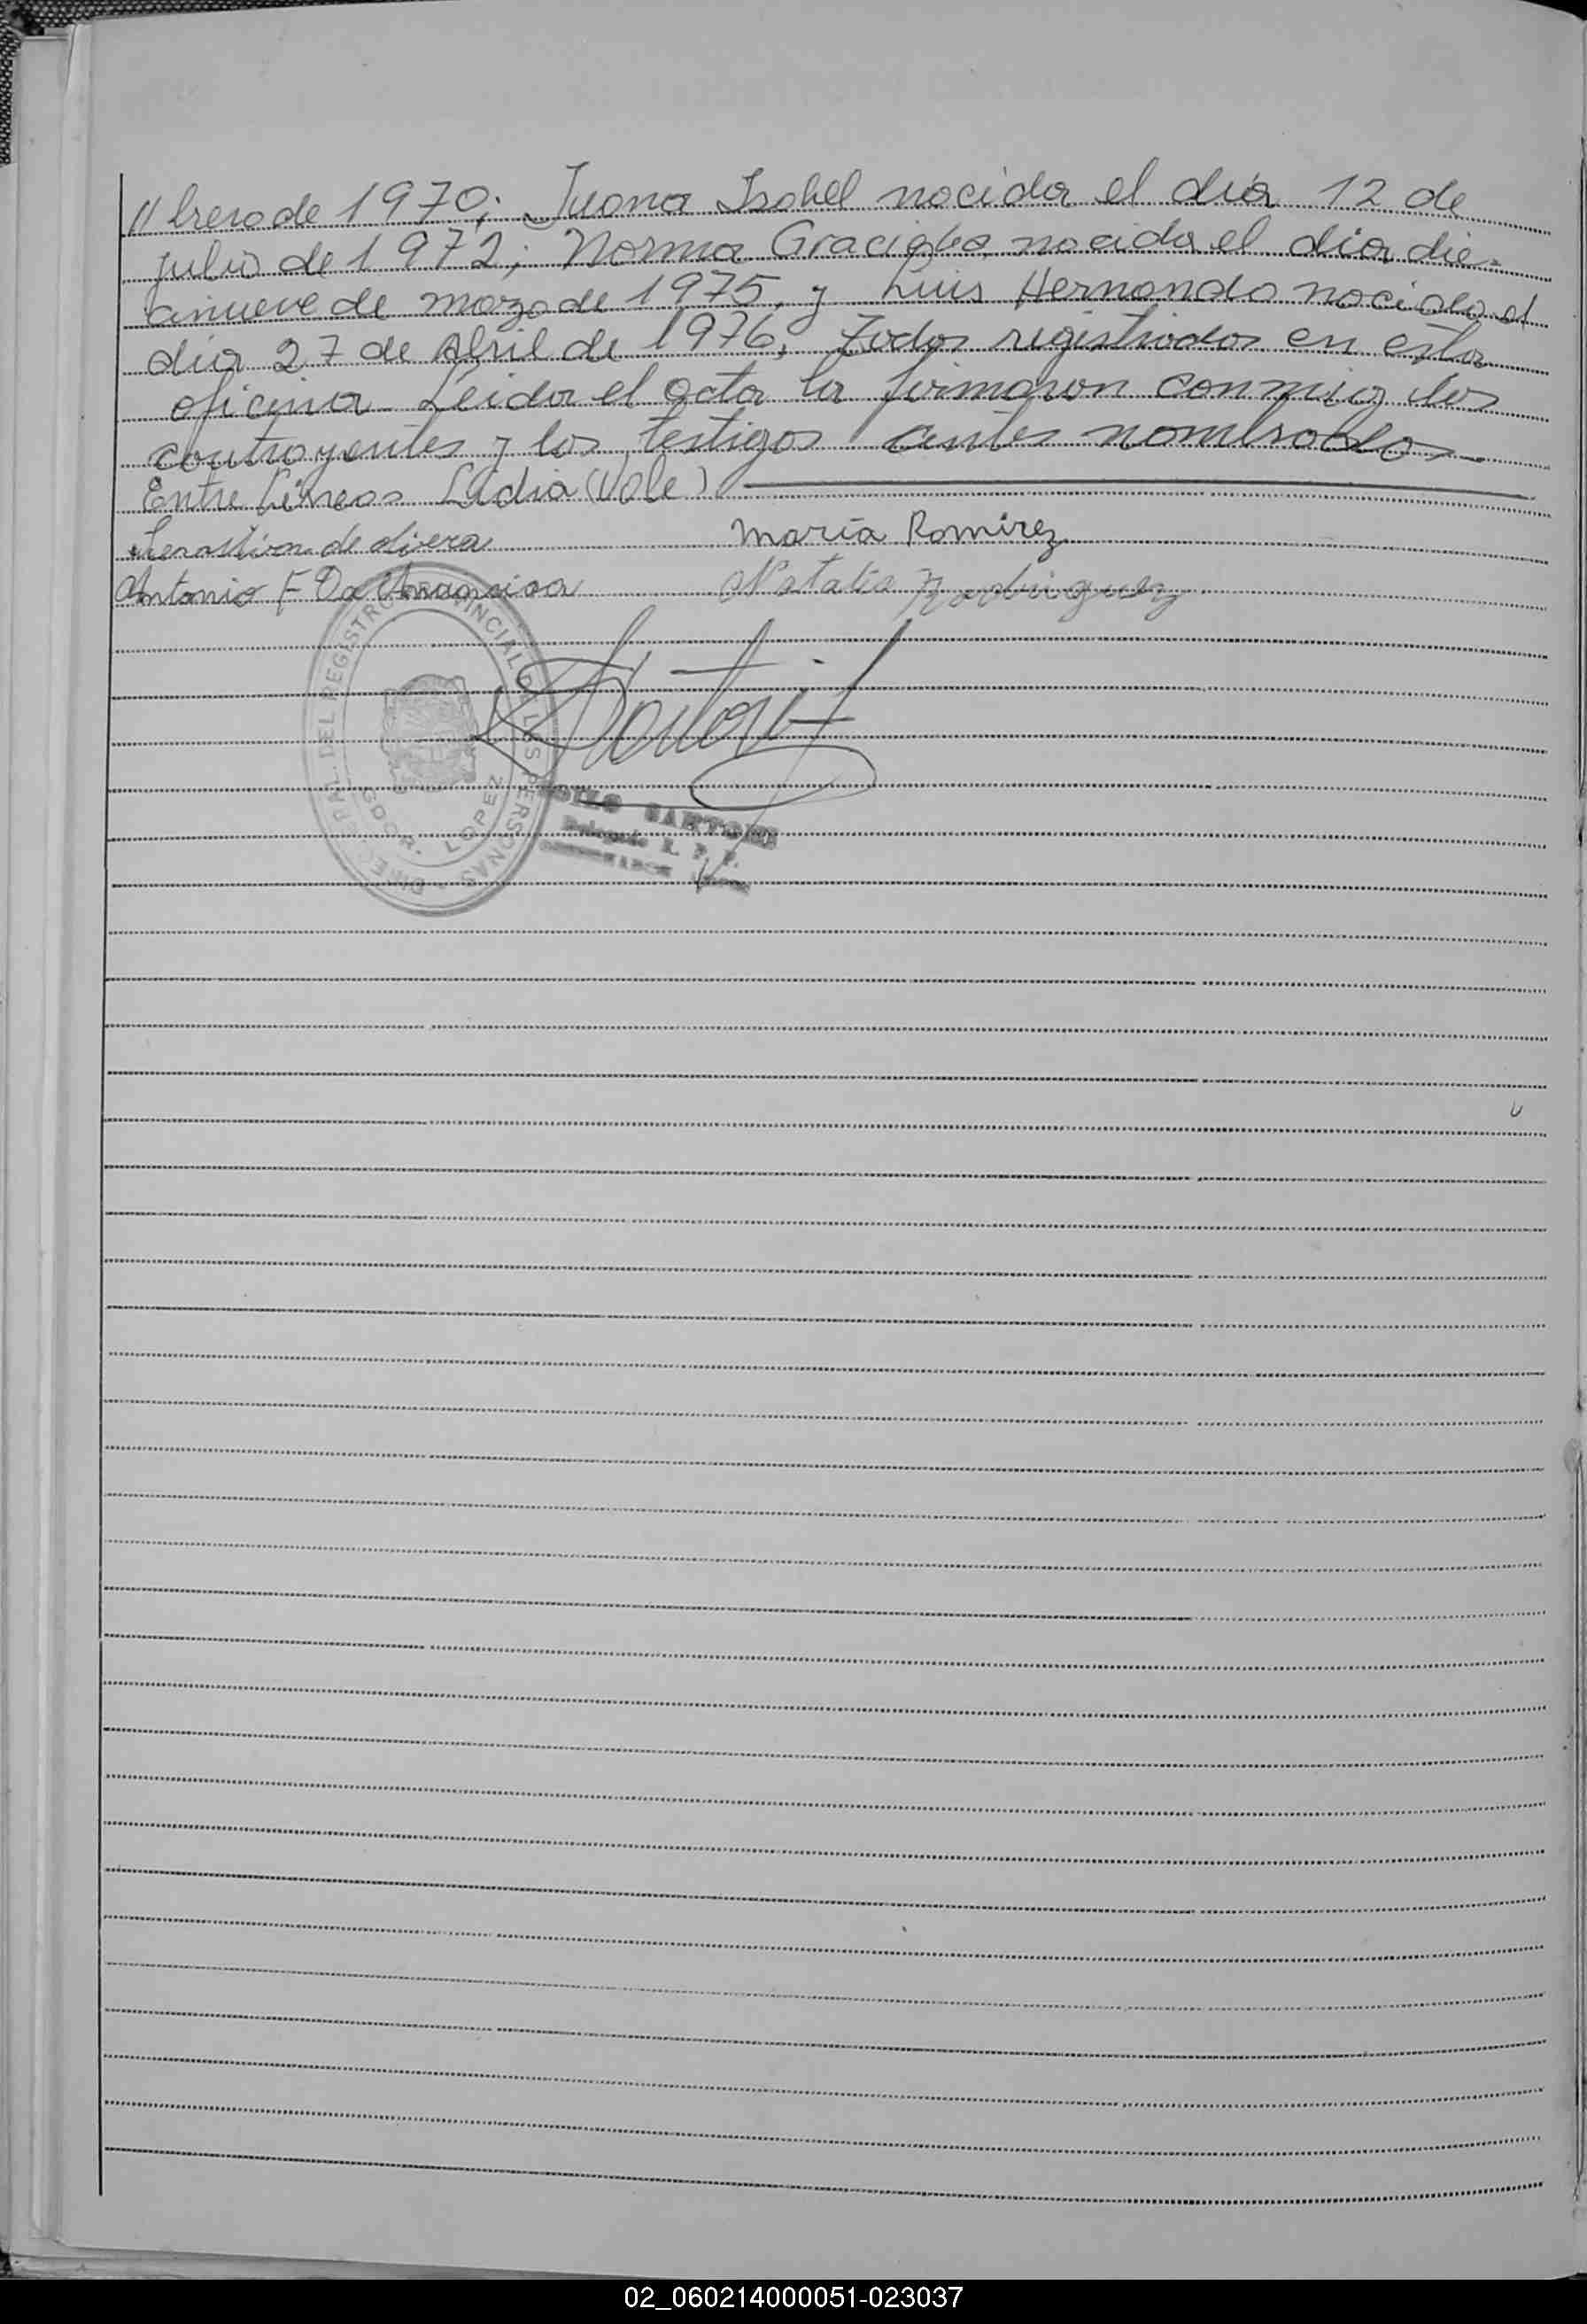 // brero de 1970; Juana Isabel nacida el día 12 de
julio de 1972; Norma Graciela, nacida el día die-
cinueve de marzo de 1975, y Luis Hernando nacido el
día 27 de Abril de 1976, todos registrados en esta
oficina Leida el acta la firmaron conmigo los
contrayentes y los testigos antes nombrados
Entre Líneas Ladia (Vale)
de olivera María Ramirez
Antonio F Da Natalia Rodriguez
DEL REGISTRO PROVINCIAL DE LAS PERSONAS
GDOR. LOPEZ
SARTORI
Delegado R. P. P.
02_060214000051-023037